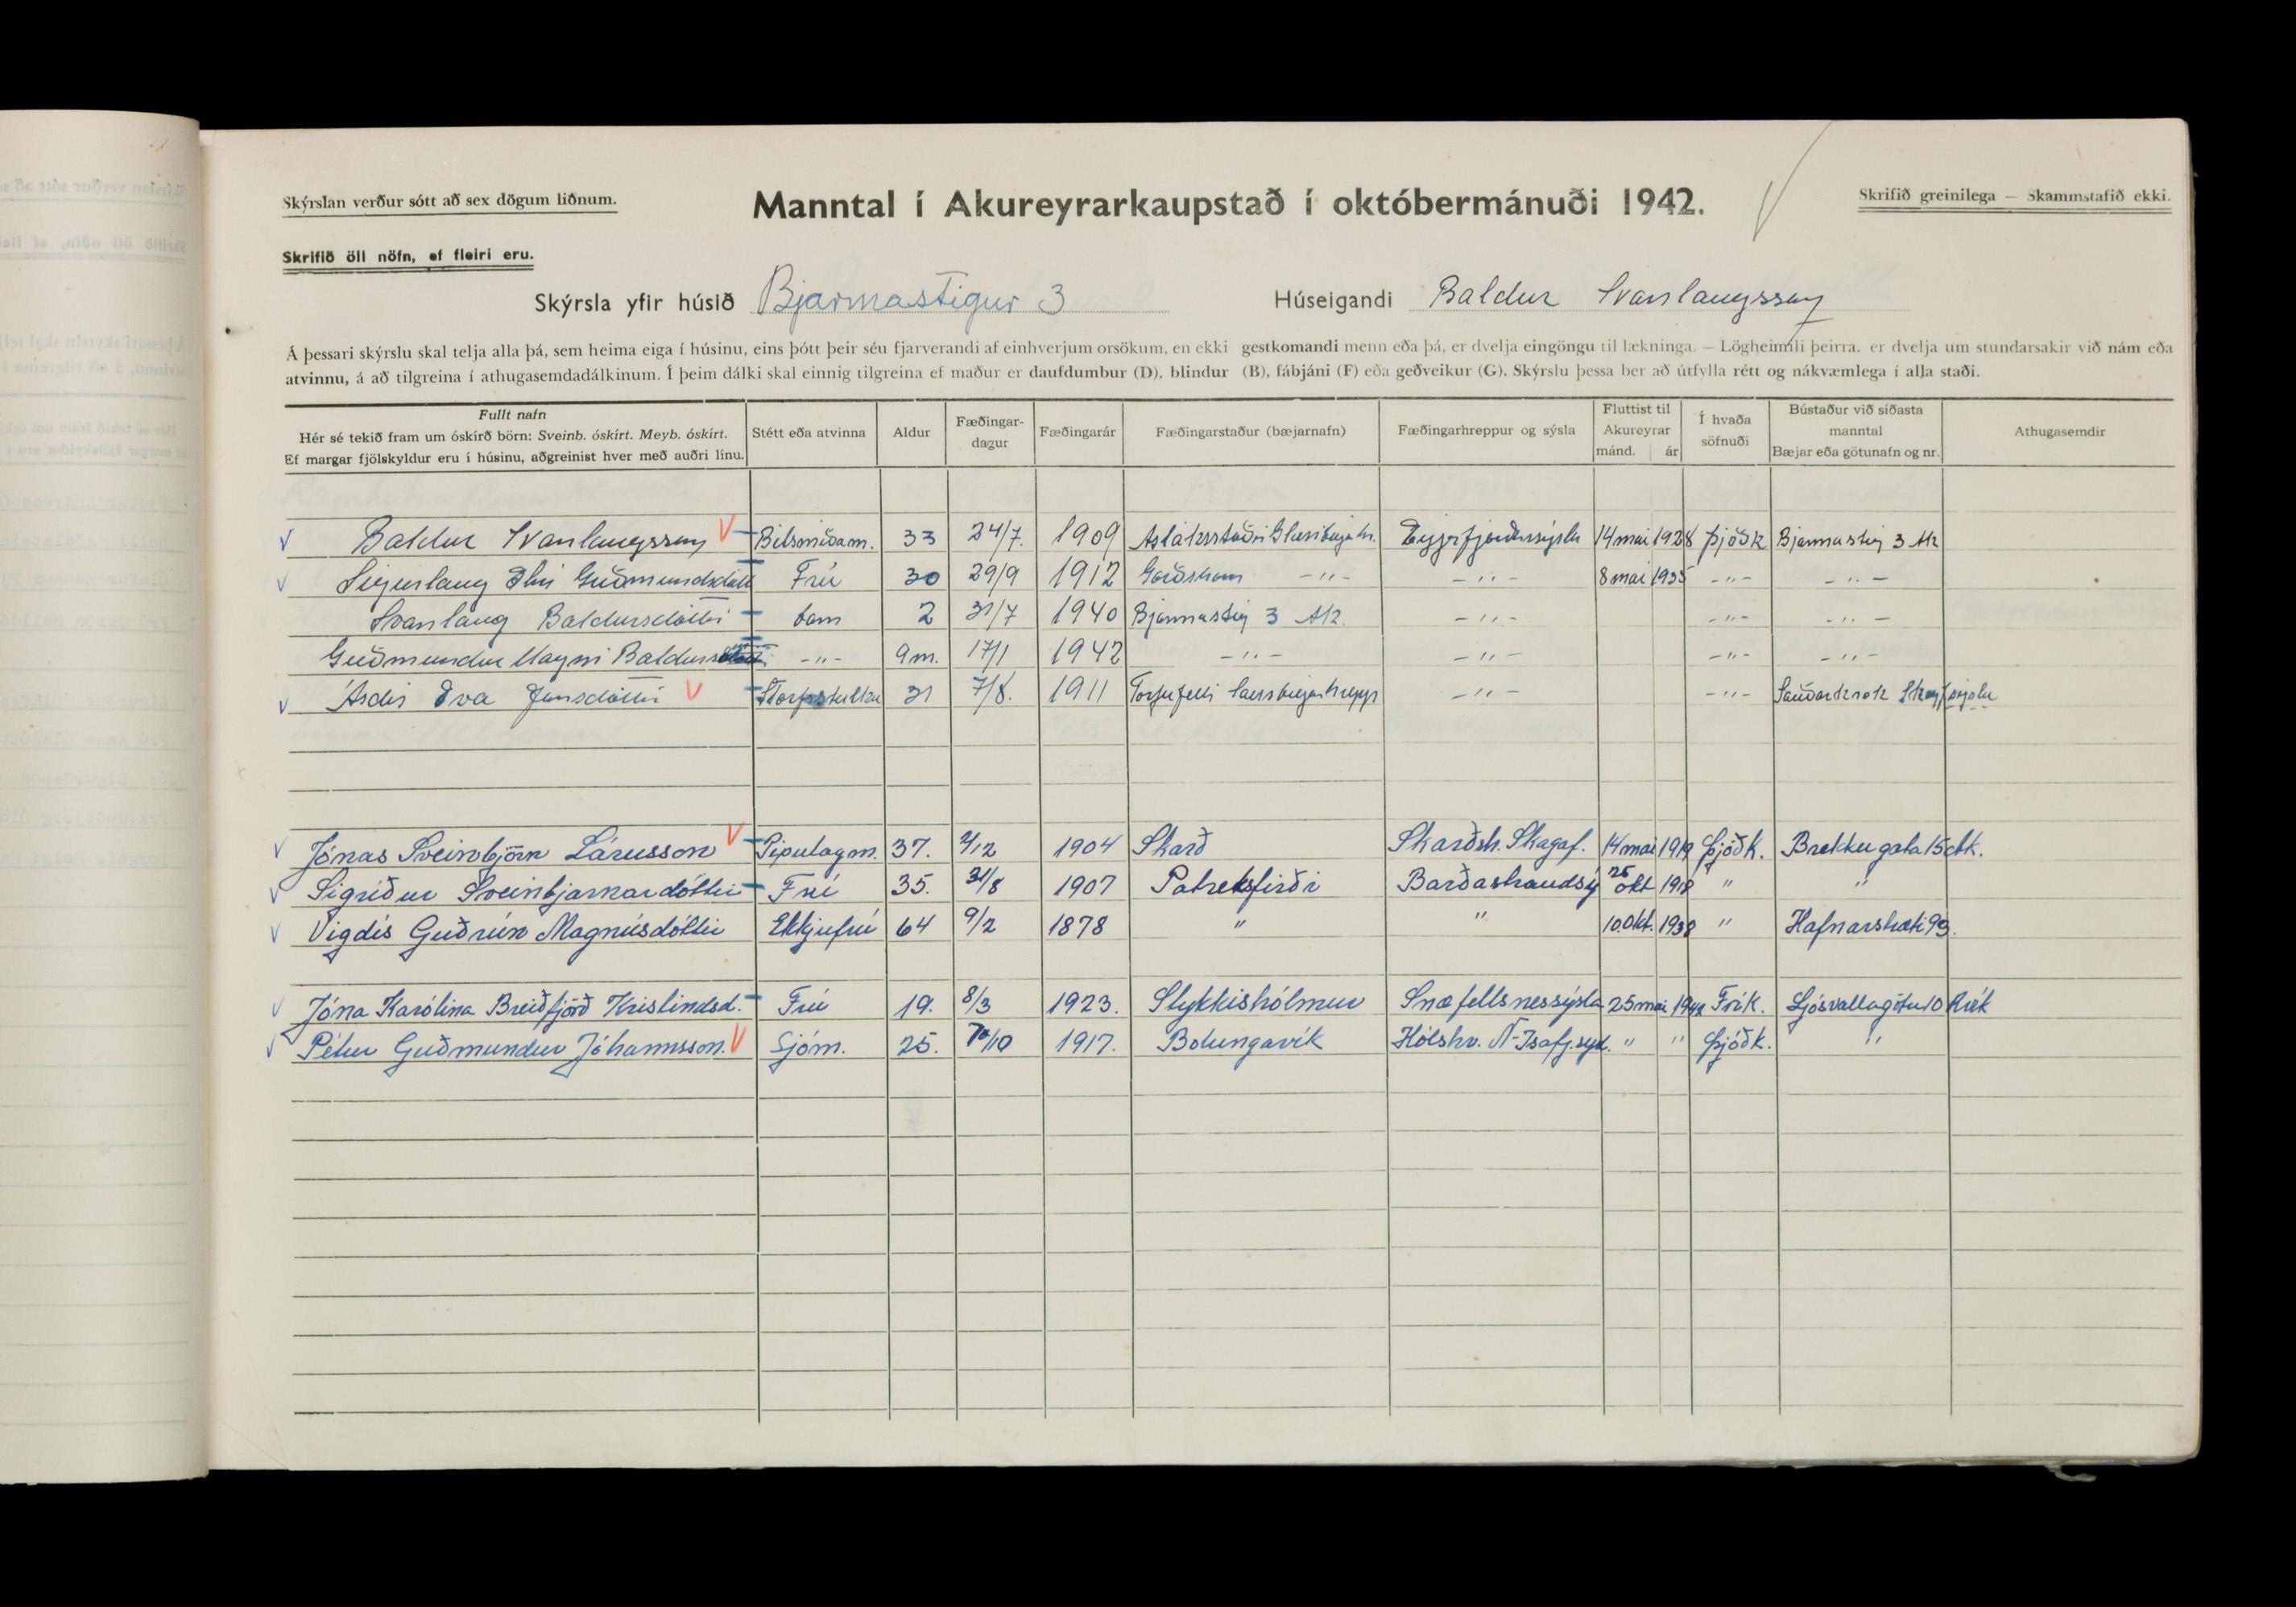 Skýrslan verður sótt að sex dögum liðnum.
Manntal í Akureyrarkaupstað í októbermánuði 1942.
Skrifið greinilega — Skammstafið ekki.
Skrifið öll nöfn, ef fleiri eru.
Skýrsla yfir húsið Bjarmastigur 3 Húseigandi Baldur Svanlaugsson
Á þessari skýrslu skal telja alla þá, sem heima eiga í húsinu, eins þótt þeir séu fjarverandi af einhverjum orsökum, en ekki gestkomandi menn eða þá, er dvelja eingöngu til lækninga. — Lögheimili þeirra, er dvelja um stundarsakir við nám eða
atvinnu, á að tilgreina í athugasemdadálkinum. Í þeim dálki skal einnig tilgreina ef maður er daufdumbur (D), blindur (B), fábjáni (F) eða geðveikur (G). Skýrslu þessa ber að útfylla rétt og nákvæmlega í alla staði.
Fullt nafn
Hér sé tekið fram um óskírð börn: Sveinb. óskírt. Meyb. óskírt.
Ef margar fjölskyldur eru í húsinu, aðgreinist hver með auðri línu.
Stétt eða atvinna
Aldur
Fæðingar-
dagur
Fæðingarár
Fæðingarstaður (bæjarnafn)
Fæðingarhreppur og sýsla
Fluttist til
Akureyrar
mánd. ár
Í hvaða
söfnuði
Bústaður við síðasta
manntal
Bæjar eða götunafn og nr.
Athugasemdir
Baldur Svanlaugsson Bílsmiðam. 33 24/7. 1909 Ásláksstaðir Glæsibæjarhr. Eyjafjarðarsýslu 14 mai 1928 þjóðk Bjarmastig 3 Ak
Sigurlaug Guðmundsdótt Frú 30 29/9 1912 -"- -"- 8 mai 1935 -"- -"-
Svanlaug Baldursdóttir barn 2 31/7 1940 Bjarmastig 3 Ak. -"- -"- -"-
Guðmundur Magni Baldurs -"- 9 m. 17/1 1942 -"- -"- -"- -"-
Ásdís Eva Jónsdóttir 31 7/8. 1911 Torfufelli Saurbæjarhrepp -"- -"- Sauðarkrok Skagfsýslu
Jónas Sveinbjörn Lárusson Pípulagm. 37. 1904 Skarð Skarðsh. Skagaf. 14 mai 1919 Þjóðk. Brekkugata 15 Ak.
Sigríður Sveinbjarnardóttir Frú 35. 31/8 1907 Patreksfirði Barðastrandsý 25 okt 1918 " "
Vigdís Guðrún Magnúsdóttir Ekkjufrú 64 9/2 1878 " " 10. Okt. 1938 " Hafnarstræti 99.
Jóna Karólína Breiðfjörð Kristinsd. Frú 19. 8/3 1923. Stykkishólmur Snæfellsnessýsla 25 mai 1942 Frík. Ljósvallagötu 10 Rvík
Pétur Guðmundur Jóhannsson. Sjóm. 25. 1917. Bolungavík Hólshr. N-Ísafj.sýs. " " Þjóðk. "